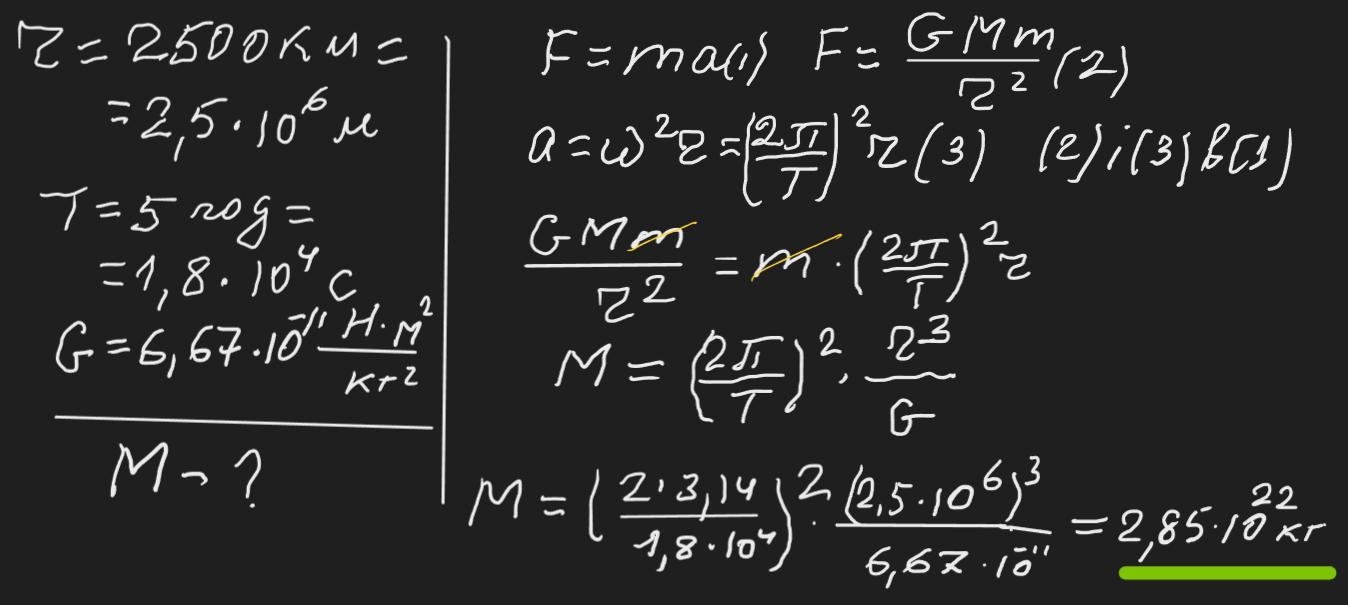 r = 2500 км =
= 2,5·10⁶ м
T = 5 год =
= 1,8·10⁴ с
G = 6,67·10⁻¹¹ Н·м²/кг²
M - ?
F = ma (1) F = GMm/r² (2)
a = ω²r = (2π/T)² r (3) (2) і (3) в (1)
GMm/r² = m·(2π/T)² r
M = (2π/T)² · r³/G
M = (2·3,14/1,8·10⁴)² · (2,5·10⁶)³/6,67·10⁻¹¹ = 2,85·10²² кг